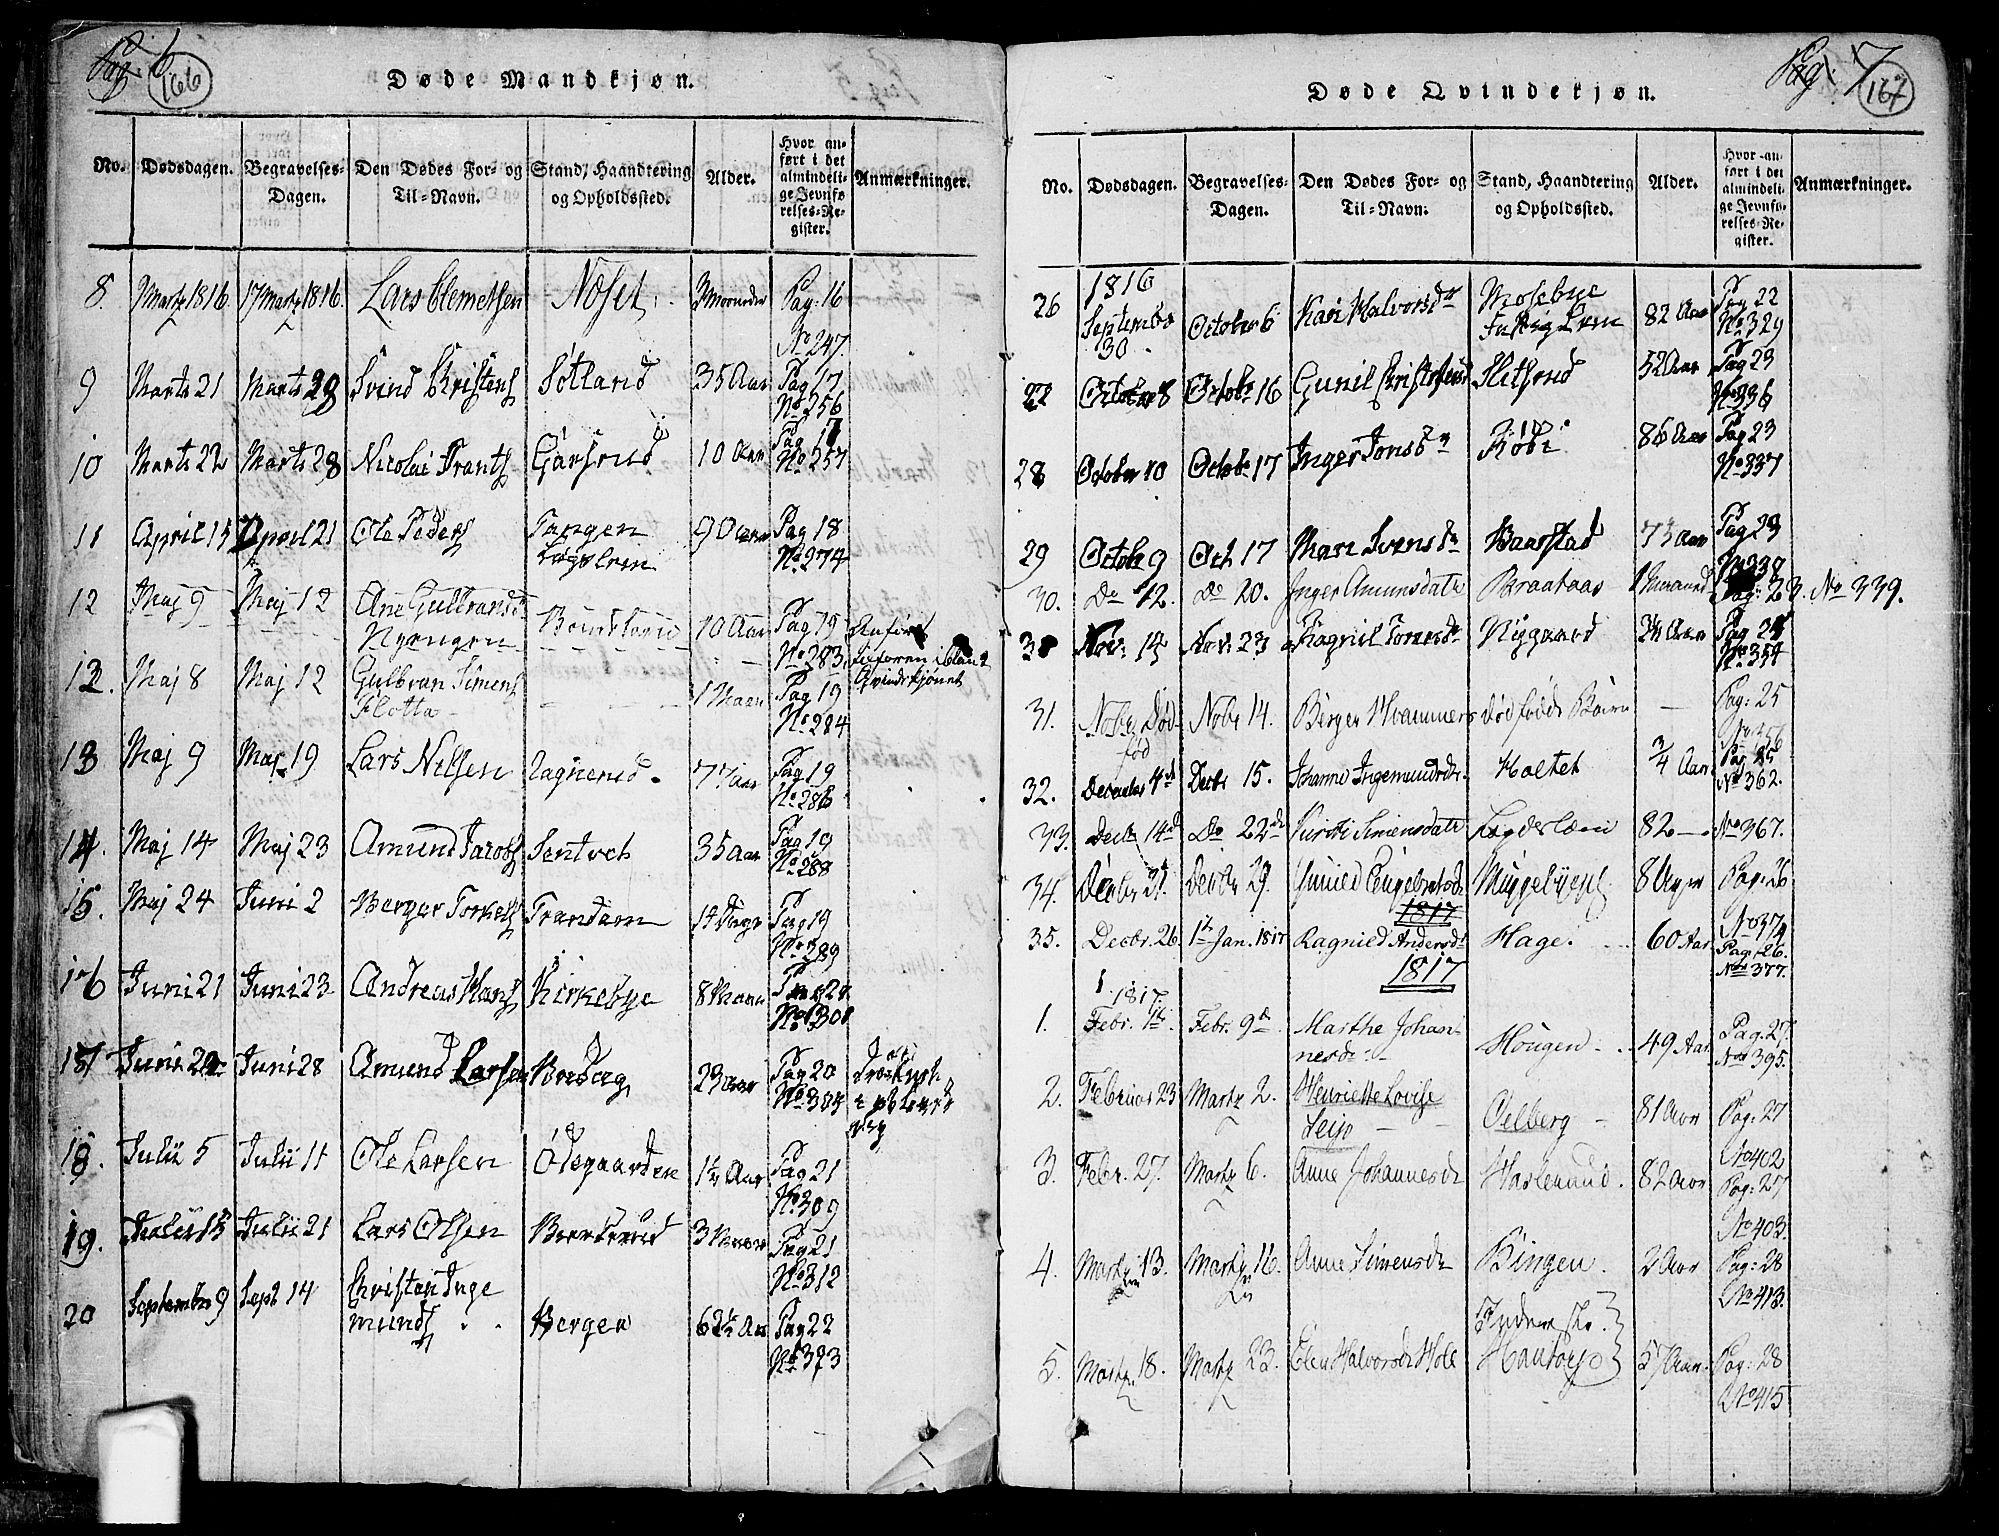 Pag. 6
166
Døde Mandkjøn.
No. Dødsdagen. Begravelses-Dagen. Den Dødes For- og Til-Navn. Stand, Haandtering og Opholdssted. Alder. Hvor anført i det almindelige Jevnførelses-Register. Anmærkninger.
8. Martz 1816. 17 Martz 1816. Lars Clemetsen Nöset. 3 Maaneder Pag: 16 No 247.
9 Marts 21 Marts 29 Svend Christens Sötland 35 Aar Pag 17 No 256
10 Marts 22 Marts 28 Nicolai Frants Garsrud 10 Aar Pag 17 No 257
11 April 15 April 21 Ole Peders Tangen 90 Aar Pag 18 No 274
12 Maj 9 Maj 12 Ane Gulbrandsd Nyengen 10 Aar Pag 19 No 283. Anført
Qvindekjønet
12. Maj 8 Maj 12 Gulbran Simens Flotta 1 Maan Pag 19 No 284
13 Maj 9 Maj 19 Lars Nelsen Ragnerud. 77 Aar Pag 19 No 286
14. Maj 14 Maj 23 Amund Jacobs Sentvet 35 Aar Pag 19 No 288
15. Maj 24 Juni 2 Berger Torkels Trandem 14 Dage Pag 19 No 289
16 Juni 21 Juni 23 Andreas Hans Kirkebye 8 Maan No 301
17 Juni Juni 28 Amund Larsen 23 aar Pag 20 No 304
18. Julii 5 Julii 11 Ole Larsen Ödegaarden 1½ Aar Pag 21 No 309
19. Julii 15 Julii 21 Lars Olsen 3 Pag 21 No 312
20 September 9 Sept 14 Christan Inge munds Berger 62½ Aar Pag 22 No 323
Pag: 7
167
Døde Qvindekjøn.
No. Dødsdagen. Begravelses-Dagen. Den Dødes For- og Til-Navn. Stand, Haandtering og Opholdssted. Alder. Hvor anført i det almindelige Jevnførelses-Register. Anmærkninger.
26 1816 September 30 October 6 Kari Halvorsdr Mosebye 82 Aar Pag 22 No 329
27 October 8 October 16 Gunil Christofersd 52 Aar Pag 23 No 336
28 October 10 October 17 Inger Jonsdr Köbi 86 Aar Pag 23 No 337
29 Octob 9 Oct 17 Mari Svensdr Baarstad 73 Aar Pag 23
30. Do 12. Do 20. Inger Amunsdatr Braataas 1 Maaned Pag: 23. No 339.
Nov: 14 Nov: 23 Ragnil Toresdr Niggaard Aar Pag 24 No 354
31. Nobr. Död- föd Nobr 14. Berger Hvammers dödfödde Barn — Pag: 25 No 356
32. December 4de Decbr 15. Johanne Ingemundsdr. Holtet ¾ Aar Pag 25 No 362.
33. Decbr 14d Do 22de Simensdatr 82 — No 367.
34. Decbr 21. Decbr 29. Engelbretsdr. Müggebyeys 8 Pag: 26 No 374
1817
35. Decbr. 26. 1te Jan. 1817 Ragnild Andersdr Hage. 60 Aar Pag: 26. No 377.
1817
1. 1817. Febr. 1te. Febr. 9de Marthe Johan- nesdr. Hougen 49 Aar Pag. 27. No 395.
2. Februar 23 Martz 2. Henriette Lovise Seip Oelberg 81 Aar Pag: 27 No 402
3. Febr. 27. Martz 6. Anne Johannesdr Haslerud. 82 Aar Pag: 27 No 403.
4. Martz 13. Martz 16. Anne Simensdr Bingen. 2 Aar Pag: 28 No 413.
5. Martz. 18. Martz 23. Elen Halvorsdr Holl 57 Aar. Pag: 28 No 415